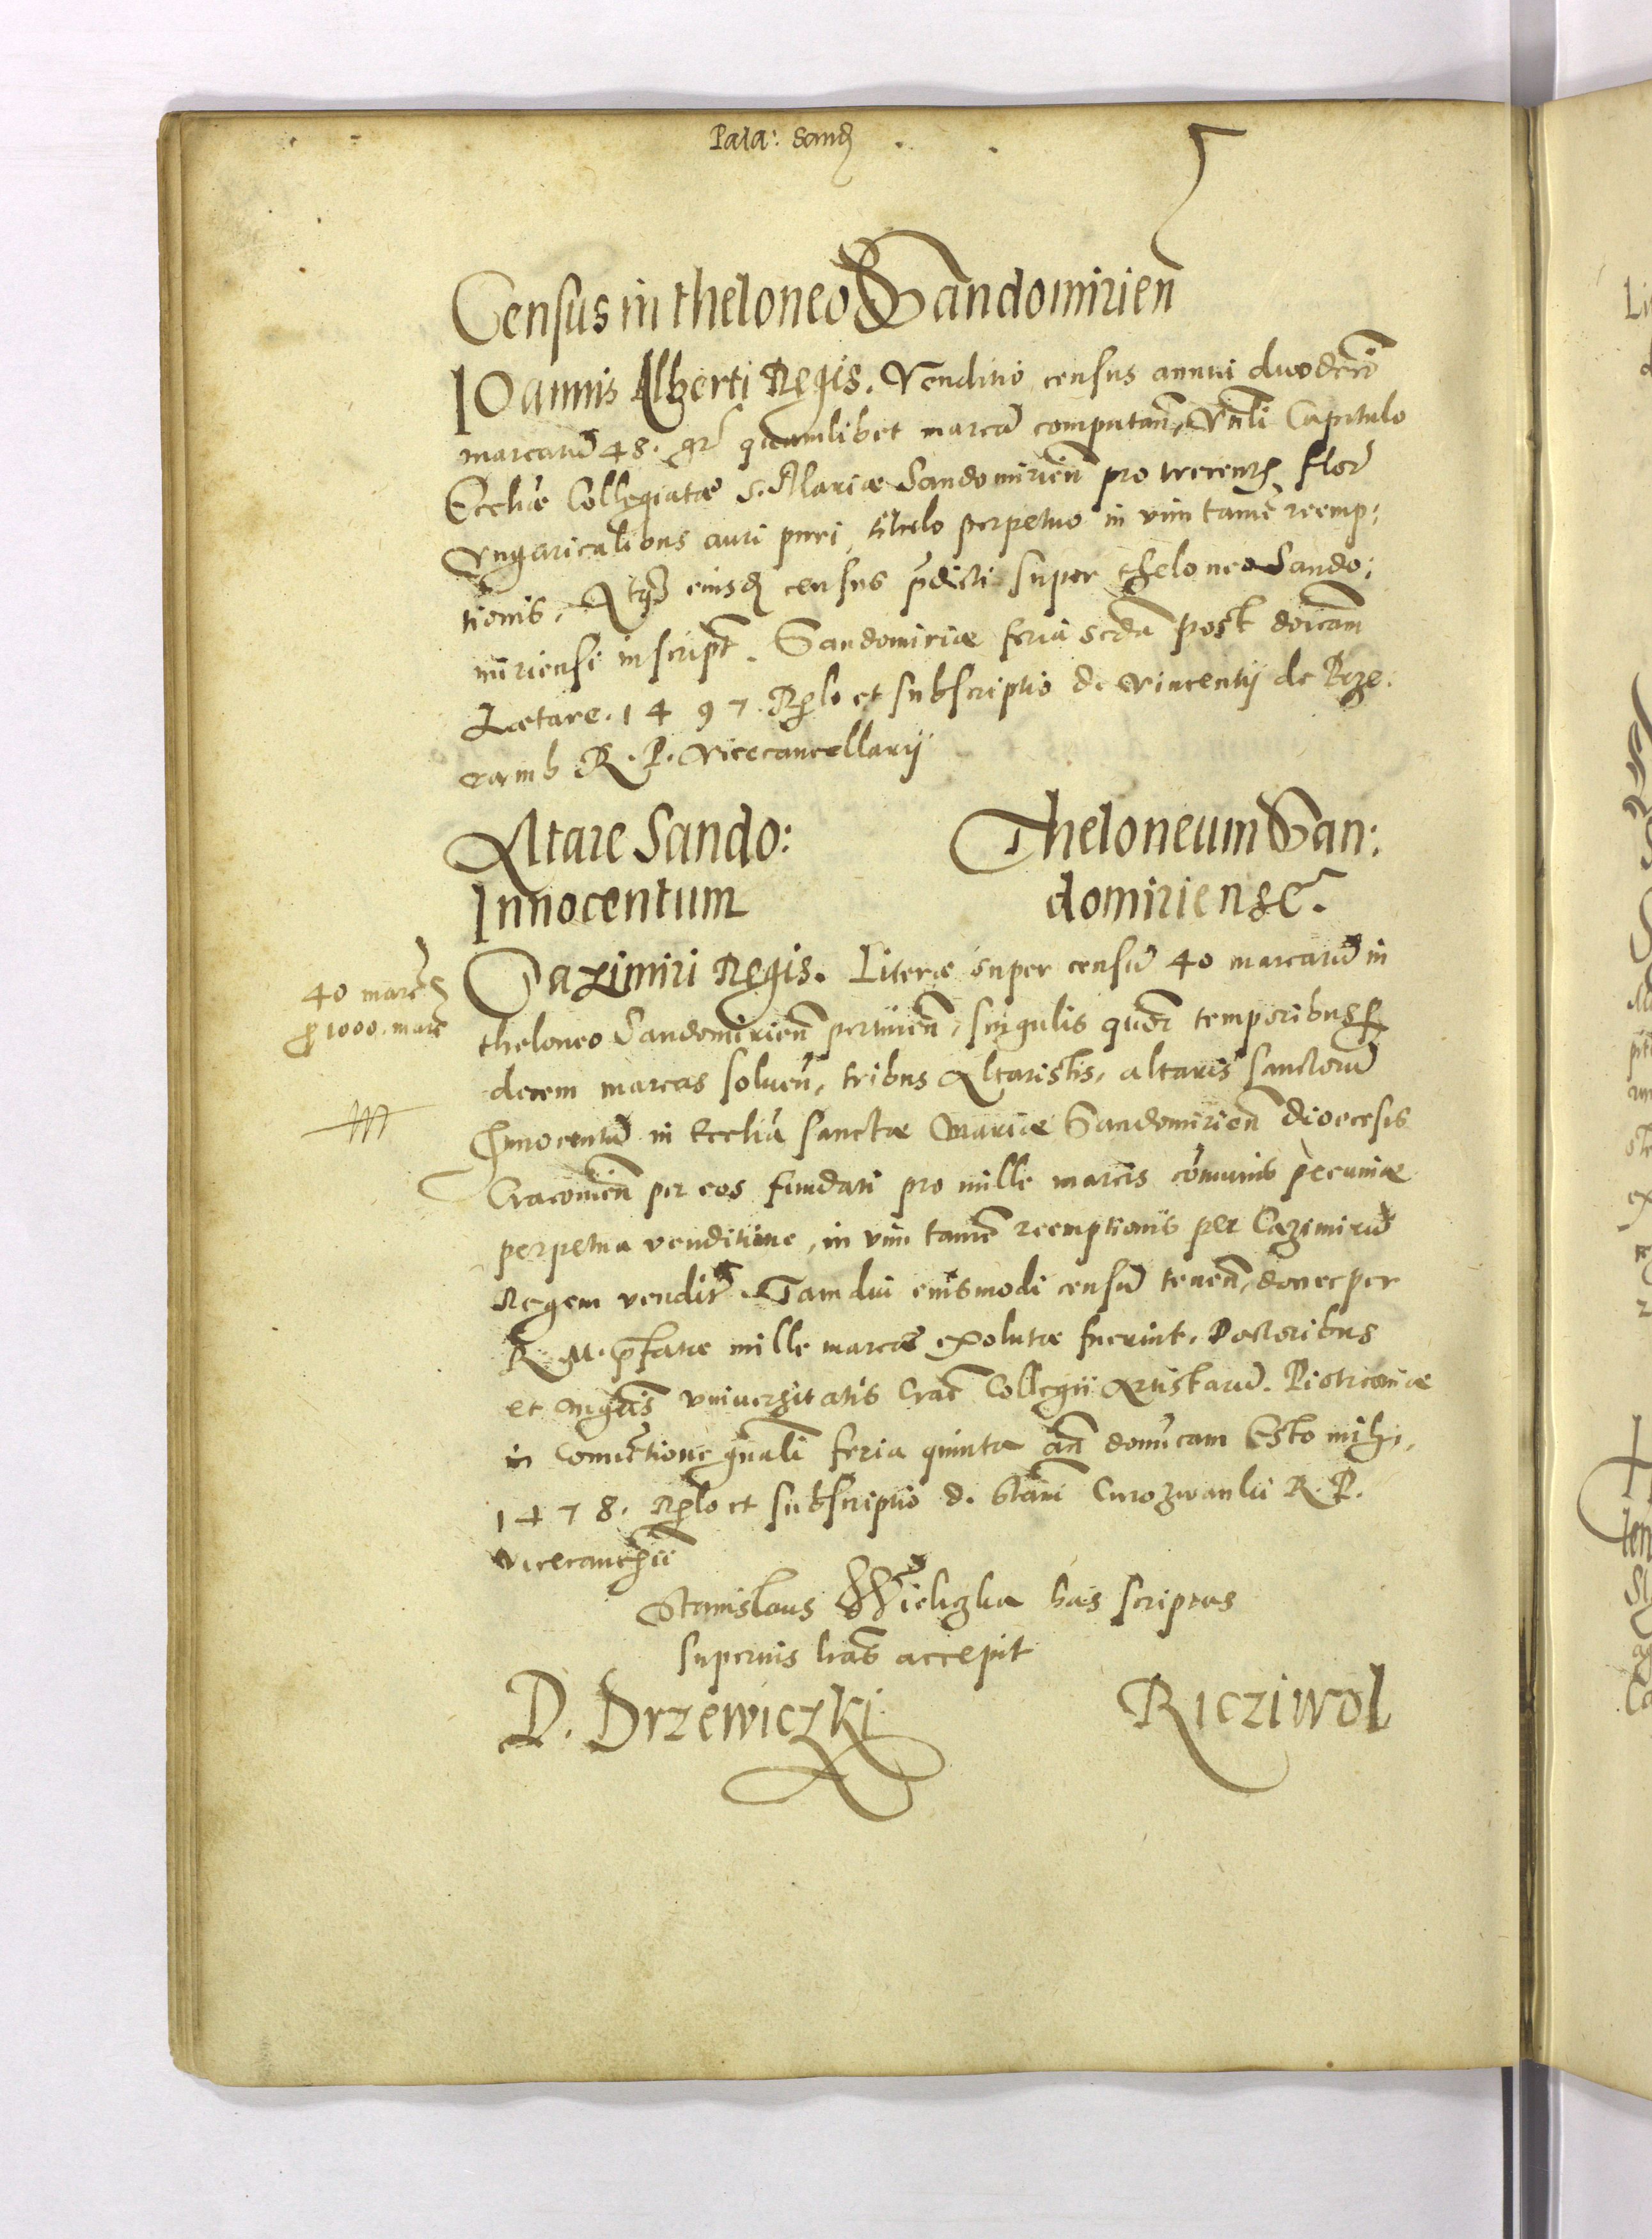 Pala: Sand
Census in theloneo Sandomirien
IOannis Alberti Regis. Venditio census annui duodeci
marcaru 48. gr quamlibet marca computan, Vnli Capitulo
Eccliæ Collegiatæ S. Mariæ Sandomirien pro trecent flor
Vngaricalibus auri puri, titulo perpetuo in vim tame reemp:
tionis, Atq eiusd census pdicti super theloneo Sando:
miriensi inscript. Sandomiriæ feria scda post doicam
Lætare. 1497. Rlo et subscriptio d. Vincentij de Prze
ramb R. P. Vicecancellarij
Altare Sando: Theloneum San:
Innocentum domiriense.
40 marc
p 1000. marc
Cazimiri Regis. Literæ super censu 40 marcaru in
theloneo Sandomirien pertinen, singulis quor temporibus p
decem marcas soluen, tribus Altaristis, altaris sanctoru
Innocentu in Ecclia sanctæ Mariæ Sandomirien dioecesis
Cracouien per eos fundati pro mille marcis comunis pecuniæ
perpetua venditione, in vim tame reemptionis per Cazimiru
Regem vendit. Tam diu eiusmodi censu tenen, donec per
R. M. pfatæ mille marcæ exolutæ fuerint. Doctoribus
et Mgris vniuersitatis Crac Collegii Artistaru. Piotrcouiæ
in Conuetione gnali feria quinta an domicam Esto mihi,
1478. Rlo et subscriptio d. Stani Curozwanlii R. P.
vicecancrii
Stanislaus Wieligka has scriptas
superius lras accepit
D. Drzewiczki Ricziwol